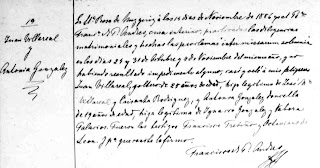 10
Juan Villareal
y
Antonia Gonzalez
En Sta Rosa de Muzquiz á los 14 dias de Noviembre de 1886 yo el Pb.
Franco N. P. Andres, cura interior, practicadas las diligencias
matrimoniales y hechas las proclamas inter missarum solemnia
en los dias 24 y 31 de Octubre y de Noviembre del mismo año, y no
habiendo resultado impedimento alguno, casé y velé in facie ecclesie
Juan Villareal, soltero de 25 años de edad, hijo legitimo de José
Villareal y Casanta Rodriguez, y Antonia Gonzalez doncella
de 19 años de edad, hija legitima de Ignacio Gonzalez y
Palacios. Fueron los testigos Francisco Treviño y
Leon. Y pa que conste lo firmo.
Francisco N. P. Andres